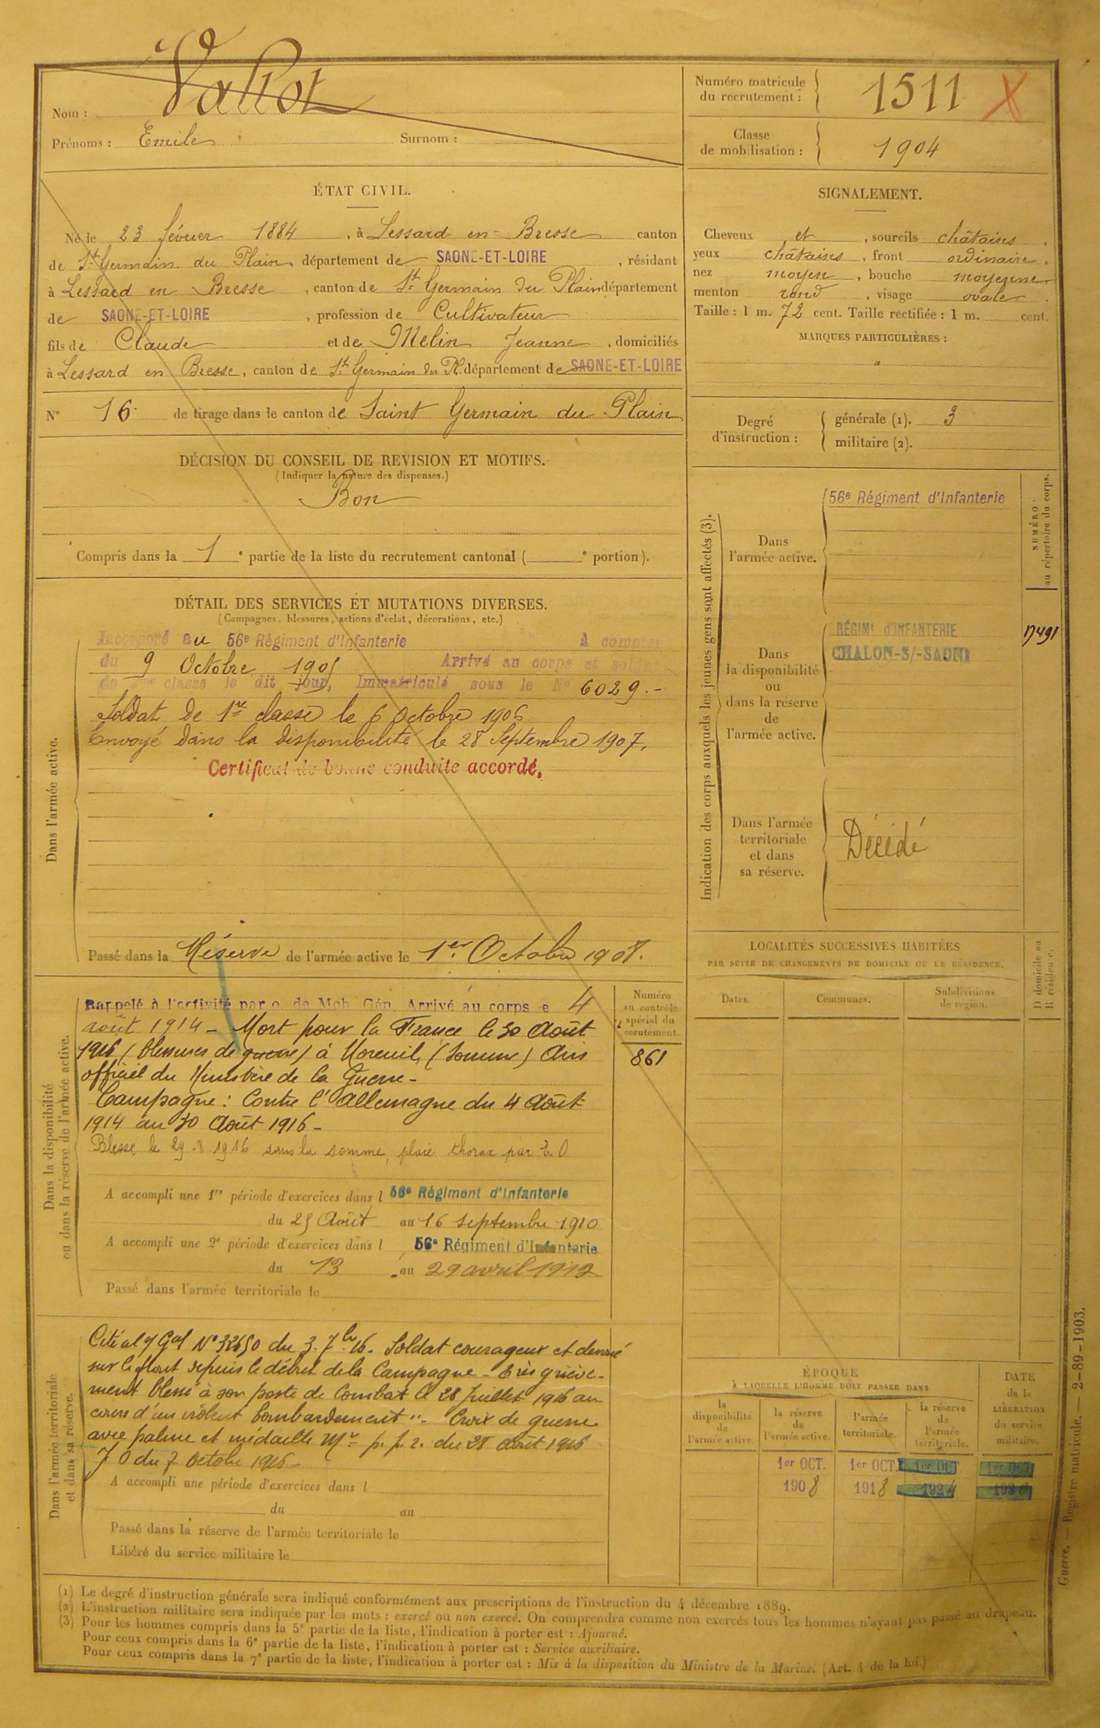 Nom : Vallot
Prénoms : Emile Surnom :
Numéro matricule du recrutement : 1511
Classe de mobilisation : 1904
ÉTAT CIVIL.
Né le 23 février 1884, à Lessard en Bresse canton
de St Germain du Plain, département de SAONE-ET-LOIRE, résidant
à Lessard en Bresse, canton de St Germain du Plain département
de SAONE-ET-LOIRE, profession de Cultivateur
fils de Claude et de Melin Jeanne, domiciliés
à Lessard en Bresse, canton de St Germain du Pl. département de SAONE-ET-LOIRE
N° 16 de tirage dans le canton de Saint Germain du Plain
SIGNALEMENT.
Cheveux et, sourcils châtains.
yeux châtains, front ordinaire.
nez moyen, bouche moyenne
menton rond, visage ovale.
Taille : 1 m. 72 cent. Taille rectifiée : 1 m. cent.
MARQUES PARTICULIÈRES :
"
Degré d'instruction : générale (1). 3
militaire (2).
DÉCISION DU CONSEIL DE REVISION ET MOTIFS.
(Indiquer la nature des dispenses.)
Bon
Compris dans la 1e partie de la liste du recrutement cantonal ( e portion).
DÉTAIL DES SERVICES ET MUTATIONS DIVERSES.
(Campagnes, blessures, actions d'éclat, décorations, etc.)
Dans l'armée active.
Incorporé au 56e Régiment d'Infanterie A compter
du 9 Octobre 1905 Arrivé au corps et soldat
de classe le dit jour, Immatriculé sous le N° 6029.-
Soldat de 1re classe le 6 Octobre 1906
Envoyé dans la disponibilité le 28 Septembre 1907.
Certificat de bonne conduite accordé.
Passé dans la Réserve de l'armée active le 1er Octobre 1908.
Indication des corps auxquels les jeunes gens sont affectés (3).
NUMÉRO au répertoire du corps.
Dans l'armée active.
56e Régiment d'Infanterie
Dans la disponibilité ou dans la réserve de l'armée active.
RÉGIMt d'INFANTERIE
CHALON-S/-SAONE
17491
Dans l'armée territoriale et dans sa réserve.
Décédé
LOCALITÉS SUCCESSIVES HABITÉES
PAR SUITE DE CHANGEMENTS DE DOMICILE OU DE RÉSIDENCE.
Dates.
Communes.
Subdivisions de région.
D domicile ou R résidence.
Dans la disponibilité ou dans la réserve de l'armée active.
Numéro au contrôle spécial du recrutement.
861
Rappelé à l'activité par o. de Mob. Gén. Arrivé au corps le 4
août 1914 - Mort pour la France le 30 Août
1916 (blessures de guerre) à Moreuil, (Somme) Avis
officiel du Ministère de la Guerre -
Campagne : Contre l'Allemagne du 4 Août
1914 au 30 Août 1916 -
Blessé le 29-8 1916 dans la somme, plaie thorax par E.O
A accompli une 1re période d'exercices dans l 56e Régiment d'Infanterie
du 25 Août au 16 septembre 1910
A accompli une 2e période d'exercices dans l 56e Régiment d'Infanterie
du 13 au 29 avril 1912
Passé dans l'armée territoriale le
Dans l'armée territoriale et dans sa réserve.
N° 32650 du 3. 7bre 16. Soldat courageux et dévoué
sur le front depuis le début de la Campagne - Très griève-
ment blessé à son poste de Combat le 28 Juillet 1916 au
cours d'un violent bombardement" - Croix de guerre
avec palme et médaille Mre p. p. 2. du 28 Août 1916
J O du 7 Octobre 1916 -
A accompli une période d'exercices dans l
du au
Passé dans la réserve de l'armée territoriale le
Libéré du service militaire le
ÉPOQUE
À LAQUELLE L'HOMME DOIT PASSER DANS
la disponibilité de l'armée active.
la réserve de l'armée active.
l'armée territoriale.
la réserve de l'armée territoriale.
DATE de la LIBÉRATION du service militaire.
1er OCT. 1908
1er OCT. 1918
1er OCT. 1924
1er OCT.
Guerre. — Registre matricule. — 2-89-1903.
(1) Le degré d'instruction générale sera indiqué conformément aux prescriptions de l'instruction du 4 décembre 1889.
(2) L'instruction militaire sera indiquée par les mots : exercé ou non exercé. On comprendra comme non exercés tous les hommes n'ayant pas passé au drapeau.
(3) Pour les hommes compris dans la 5e partie de la liste, l'indication à porter est : Ajourné.
Pour ceux compris dans la 6e partie de la liste, l'indication à porter est : Service auxiliaire.
Pour ceux compris dans la 7e partie de la liste, l'indication à porter est : Mis à la disposition du Ministre de la Marine. (Art. 4 de la loi.)